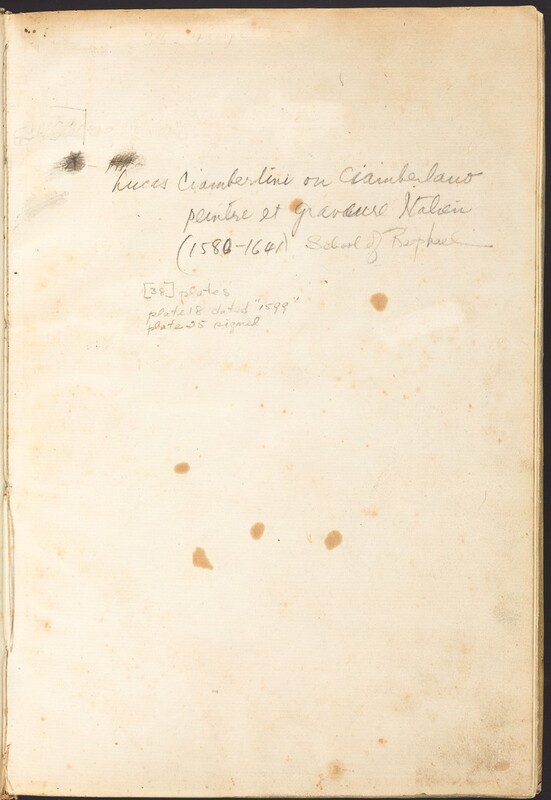 Lucas Ciambertini ou Ciamberlano
peintre et graveure Italien
(1580-1641) School of Raphael
[38] plates
plate 18 dated "1599"
plate 25 signed